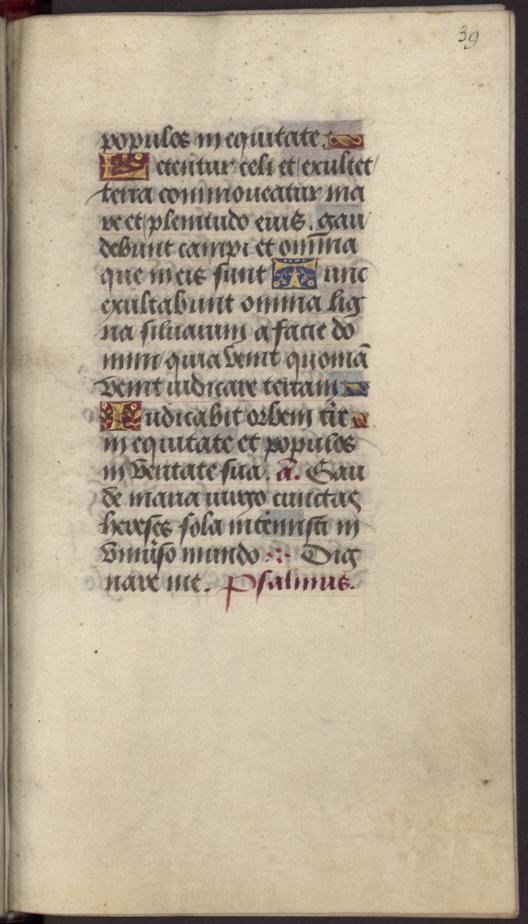 39
populos in equitate.
Letentur celi et exultet
terra commoueatur ma
re et plenitudo eius. gau
debunt campi et om̄ia
que in eis sunt Tunc
exultabunt omnia lig
na siluarum a facie do
mini quia venit quoniā
venit iudicare terram
Iudicabit orbem tr̄e
in equitate et populos
in veritate sua. a. Gau
de maria uirgo cunctas
hereses sola intemisti in
vniu̇so mundo. Dig
nare me. Psalmus.